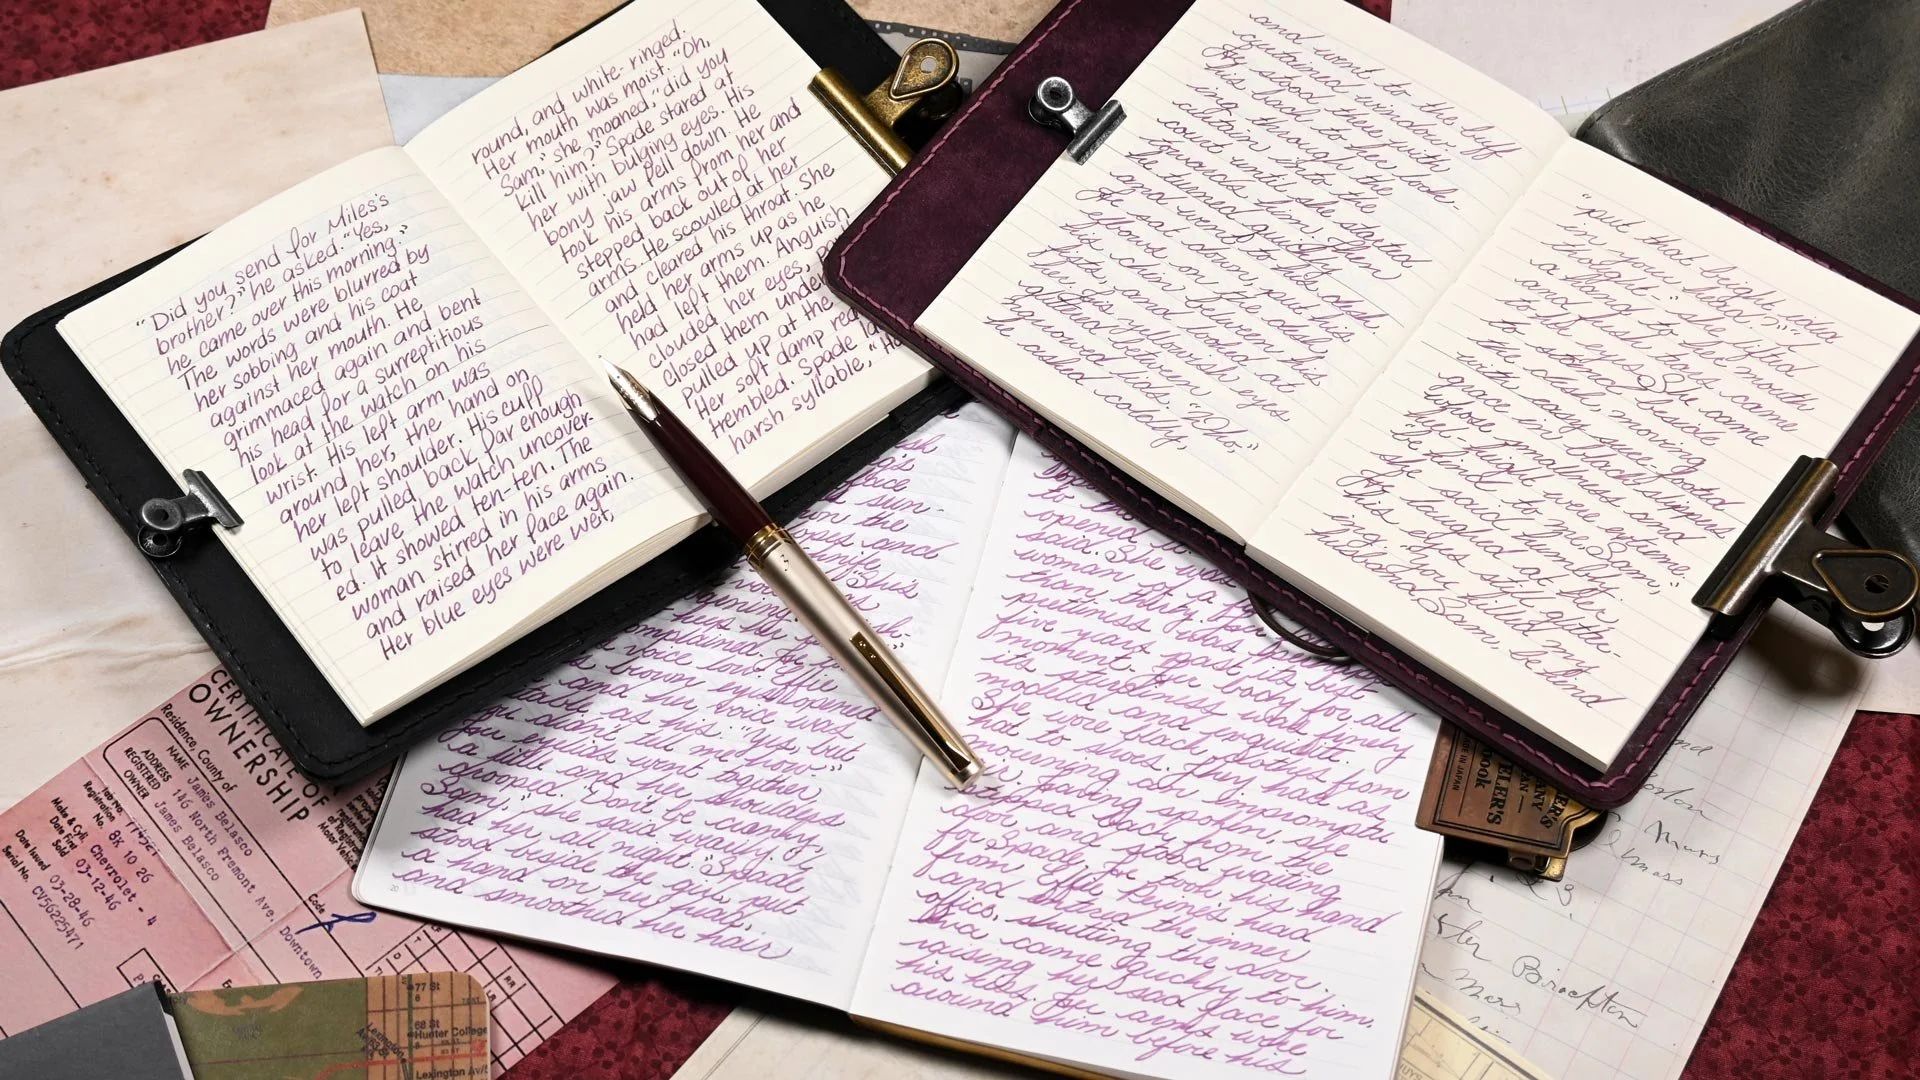 "Did you send for Miles's
brother?" he asked. "Yes,
he came over this morning."
The words were blurred by
her sobbing and his coat
against her mouth. He
grimmaced again and bent
his head for a surreptitious
look at the watch on his
wrist. His left arm was
around her, the hand on
her left shoulder. His cuff
was pulled back far enough
to leave the watch uncover-
ed. It showed ten-ten. The
woman stirred in his arms
and raised her face again.
Her blue eyes were wet,
round, and white-ringed.
Her mouth was moist. "Oh,
Sam," she moaned, "did you
kill him?" Spade stared at
her with bulging eyes. His
bony jaw fell down. He
took his arms from her and
stepped back out of her
arms. He scowled at her
and cleared his throat. She
held her arms up as he
had left them. Anguish
clouded her eyes,
closed them under
pulled up at the
Her soft damp red
trembled. Spade
harsh syllable,
and went to the buff
curtained window.
He stood there with
his back to her look-
ing through the
curtain into the
court until she started
towards him. Then
he turned quickly
and went to his desk.
He sat down, put his
elbows on the desk,
his chin between his
fists, and looked at
her. His yellowish eyes
glittered between
narrowed lids. "Who,"
he asked coldly,
"put that bright idea
in your head?" "I
thought-" she lifted
a hand to her mouth
and fresh tears came
to her eyes. She came
to stand beside
the desk, moving
with easy sure-footed
grace in black slippers
whose smallness and
heel-height were extreme.
"Be kind to me, Sam,"
she said humbly.
He laughed at her,
his eyes still glitter-
ing. "You killed my
husband, Sam, be kind
sun-
on the
and
knife.
his
complained
voice low. Effie
brown eyes opened
and her voice was
as his: "Yes, but
you didn't tell me how."
lips went together
a little and her shoulders
drooped. "Don't be cranky,
Sam," she said wearily. "I
had her all night." Spade
stood beside the girl, put
a hand on her head,
and smoothed her hair
20
to
opened
said. She was a
woman of a few
than thirty.
prettiness was
five years past its best
moment. Her body for all
its sturdiness was finely
modeled and exquisite.
She wore black clothes from
hat to shoes. They had as
mourning an impromptu
air. Having spoken, she
stepped back from the
door and stood waiting
for Spade. He took his hand
from Effie Perine's head
and entered the inner
office, shutting the door.
Iva came quickly to him,
raising her sad face for
his kiss. Her arms were
around him before his
CERTIFICATE OF
OWNERSHIP
Residence, County of
NAME James Belasco
ADDRESS 146 North Fremont Ave.
REGISTERED OWNER James Belasco
Registration No. 8K 10 26
Make & Cyl. Chevrolet - 4
Date First Sold 03-12-46
Date Issued 03-28-46
Serial No. CV5622471
Code
Downtown
77 St
6
68 St
Hunter College
Lexington Av/
Lexington
TRAVELER'S
COMPANY
JAPAN
Brockton